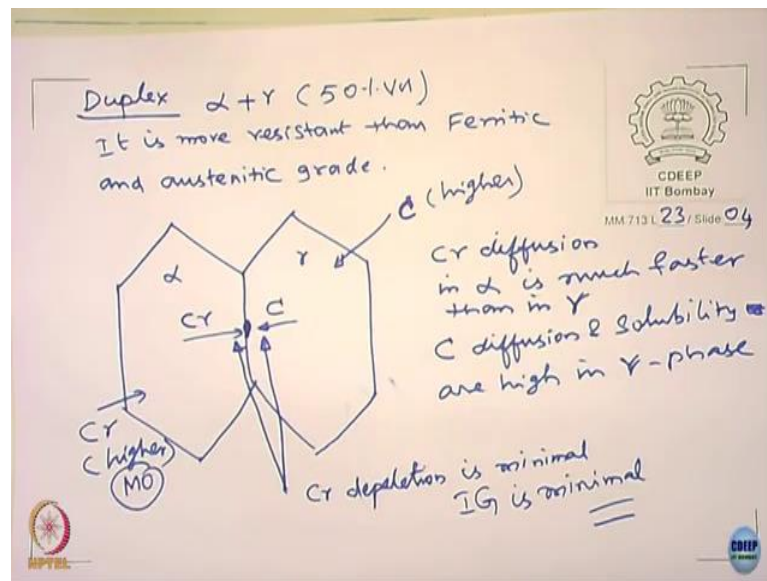 Duplex α+γ (50%. Vu)
It is more resistant than Ferritic
and austenitic grade.
CDEEP
IIT Bombay
MM 713 L 23 / Slide 04
C (higher)
α
γ
Cr
C
Cr diffusion
in α is much faster
than in γ
C diffusion & Solubility
are high in γ-phase
Cr
(higher)
MO
Cr depeletion is minimal
IG is minimal
NPTEL
CDEEP
IIT BOMBAY